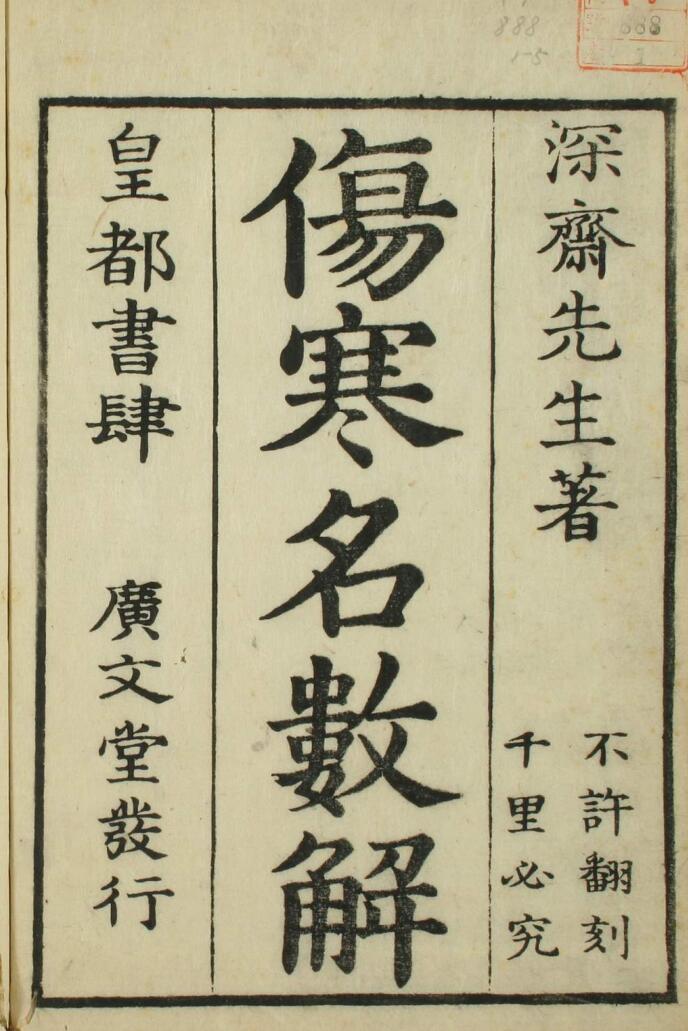 深齋先生著
不許翻刻
千里必究
傷寒名數解
皇都書肆 廣文堂發行
888
1-5
888
1